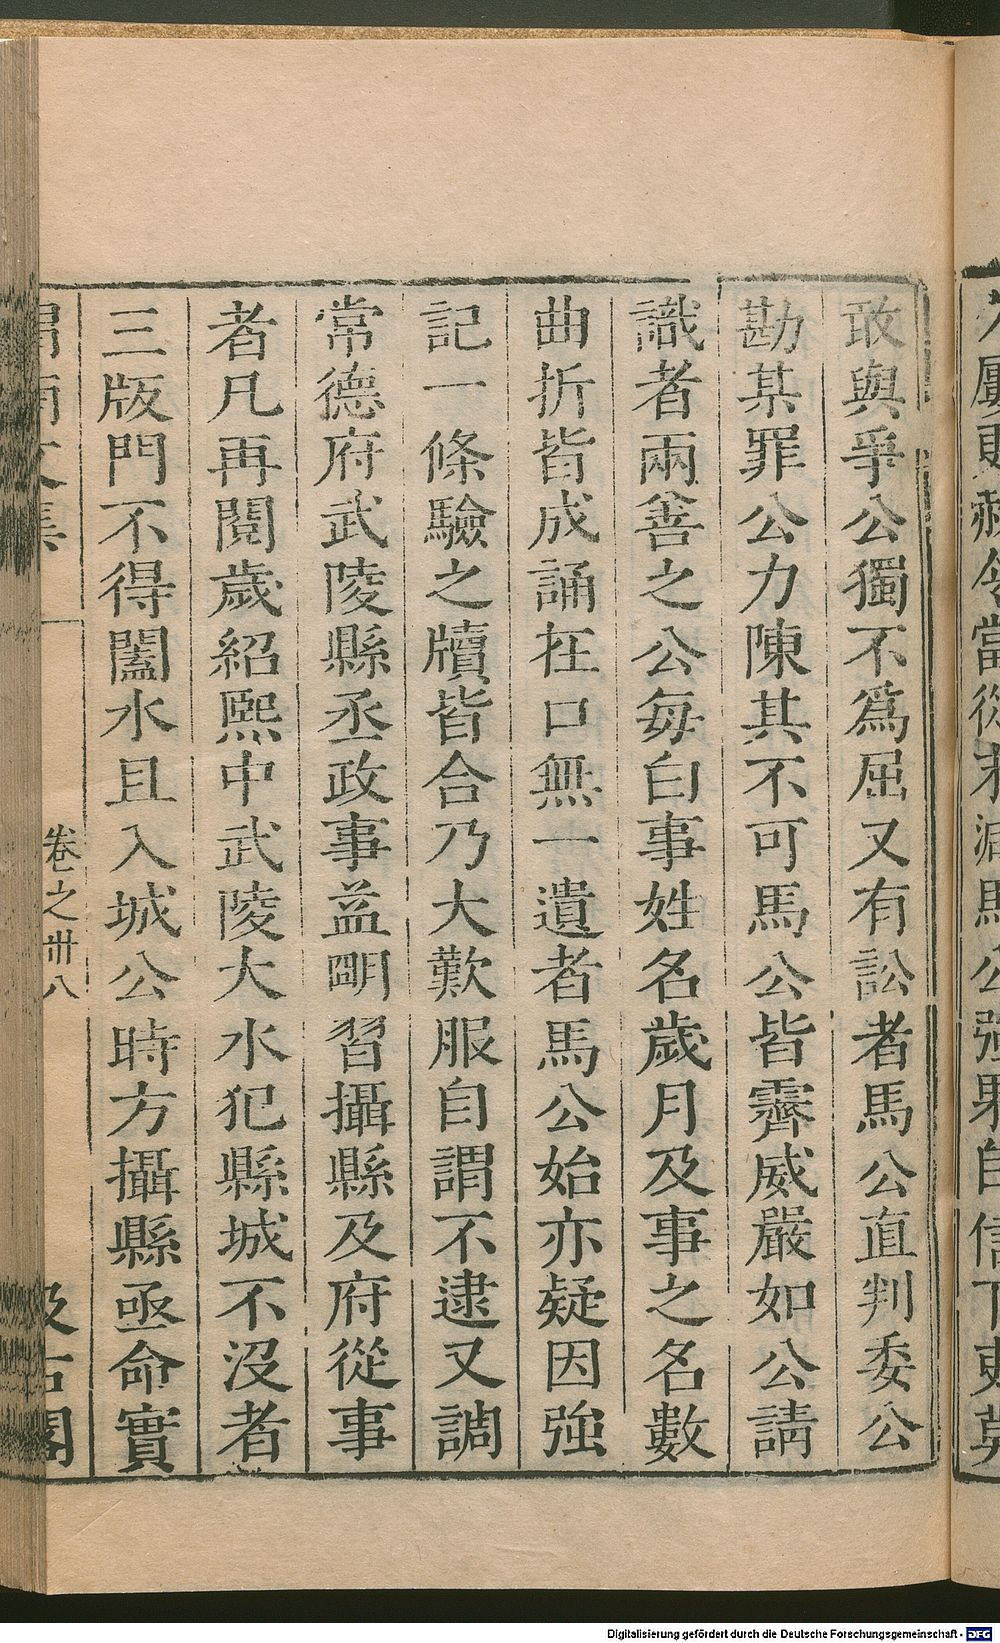 敢與爭公獨不爲屈又有訟者馬公直判委公
勘某罪公力陳其不可馬公皆霽威嚴如公請
識者兩善之公每白事姓名歲月及事之名數
曲折皆成誦在口無一遺者馬公始亦疑因強
記一條驗之牘皆合乃大歎服自謂不逮又調
常德府武陵縣丞政事益明習攝縣及府從事
者凡再閱歲紹熙中武陵大水犯縣城不沒者
三版門不得闔水且入城公時方攝縣亟命實
渭南文集
卷之卅八
汲古閣
Digitalisierung gefördert durch die Deutsche Forschungsgemeinschaft - DFG